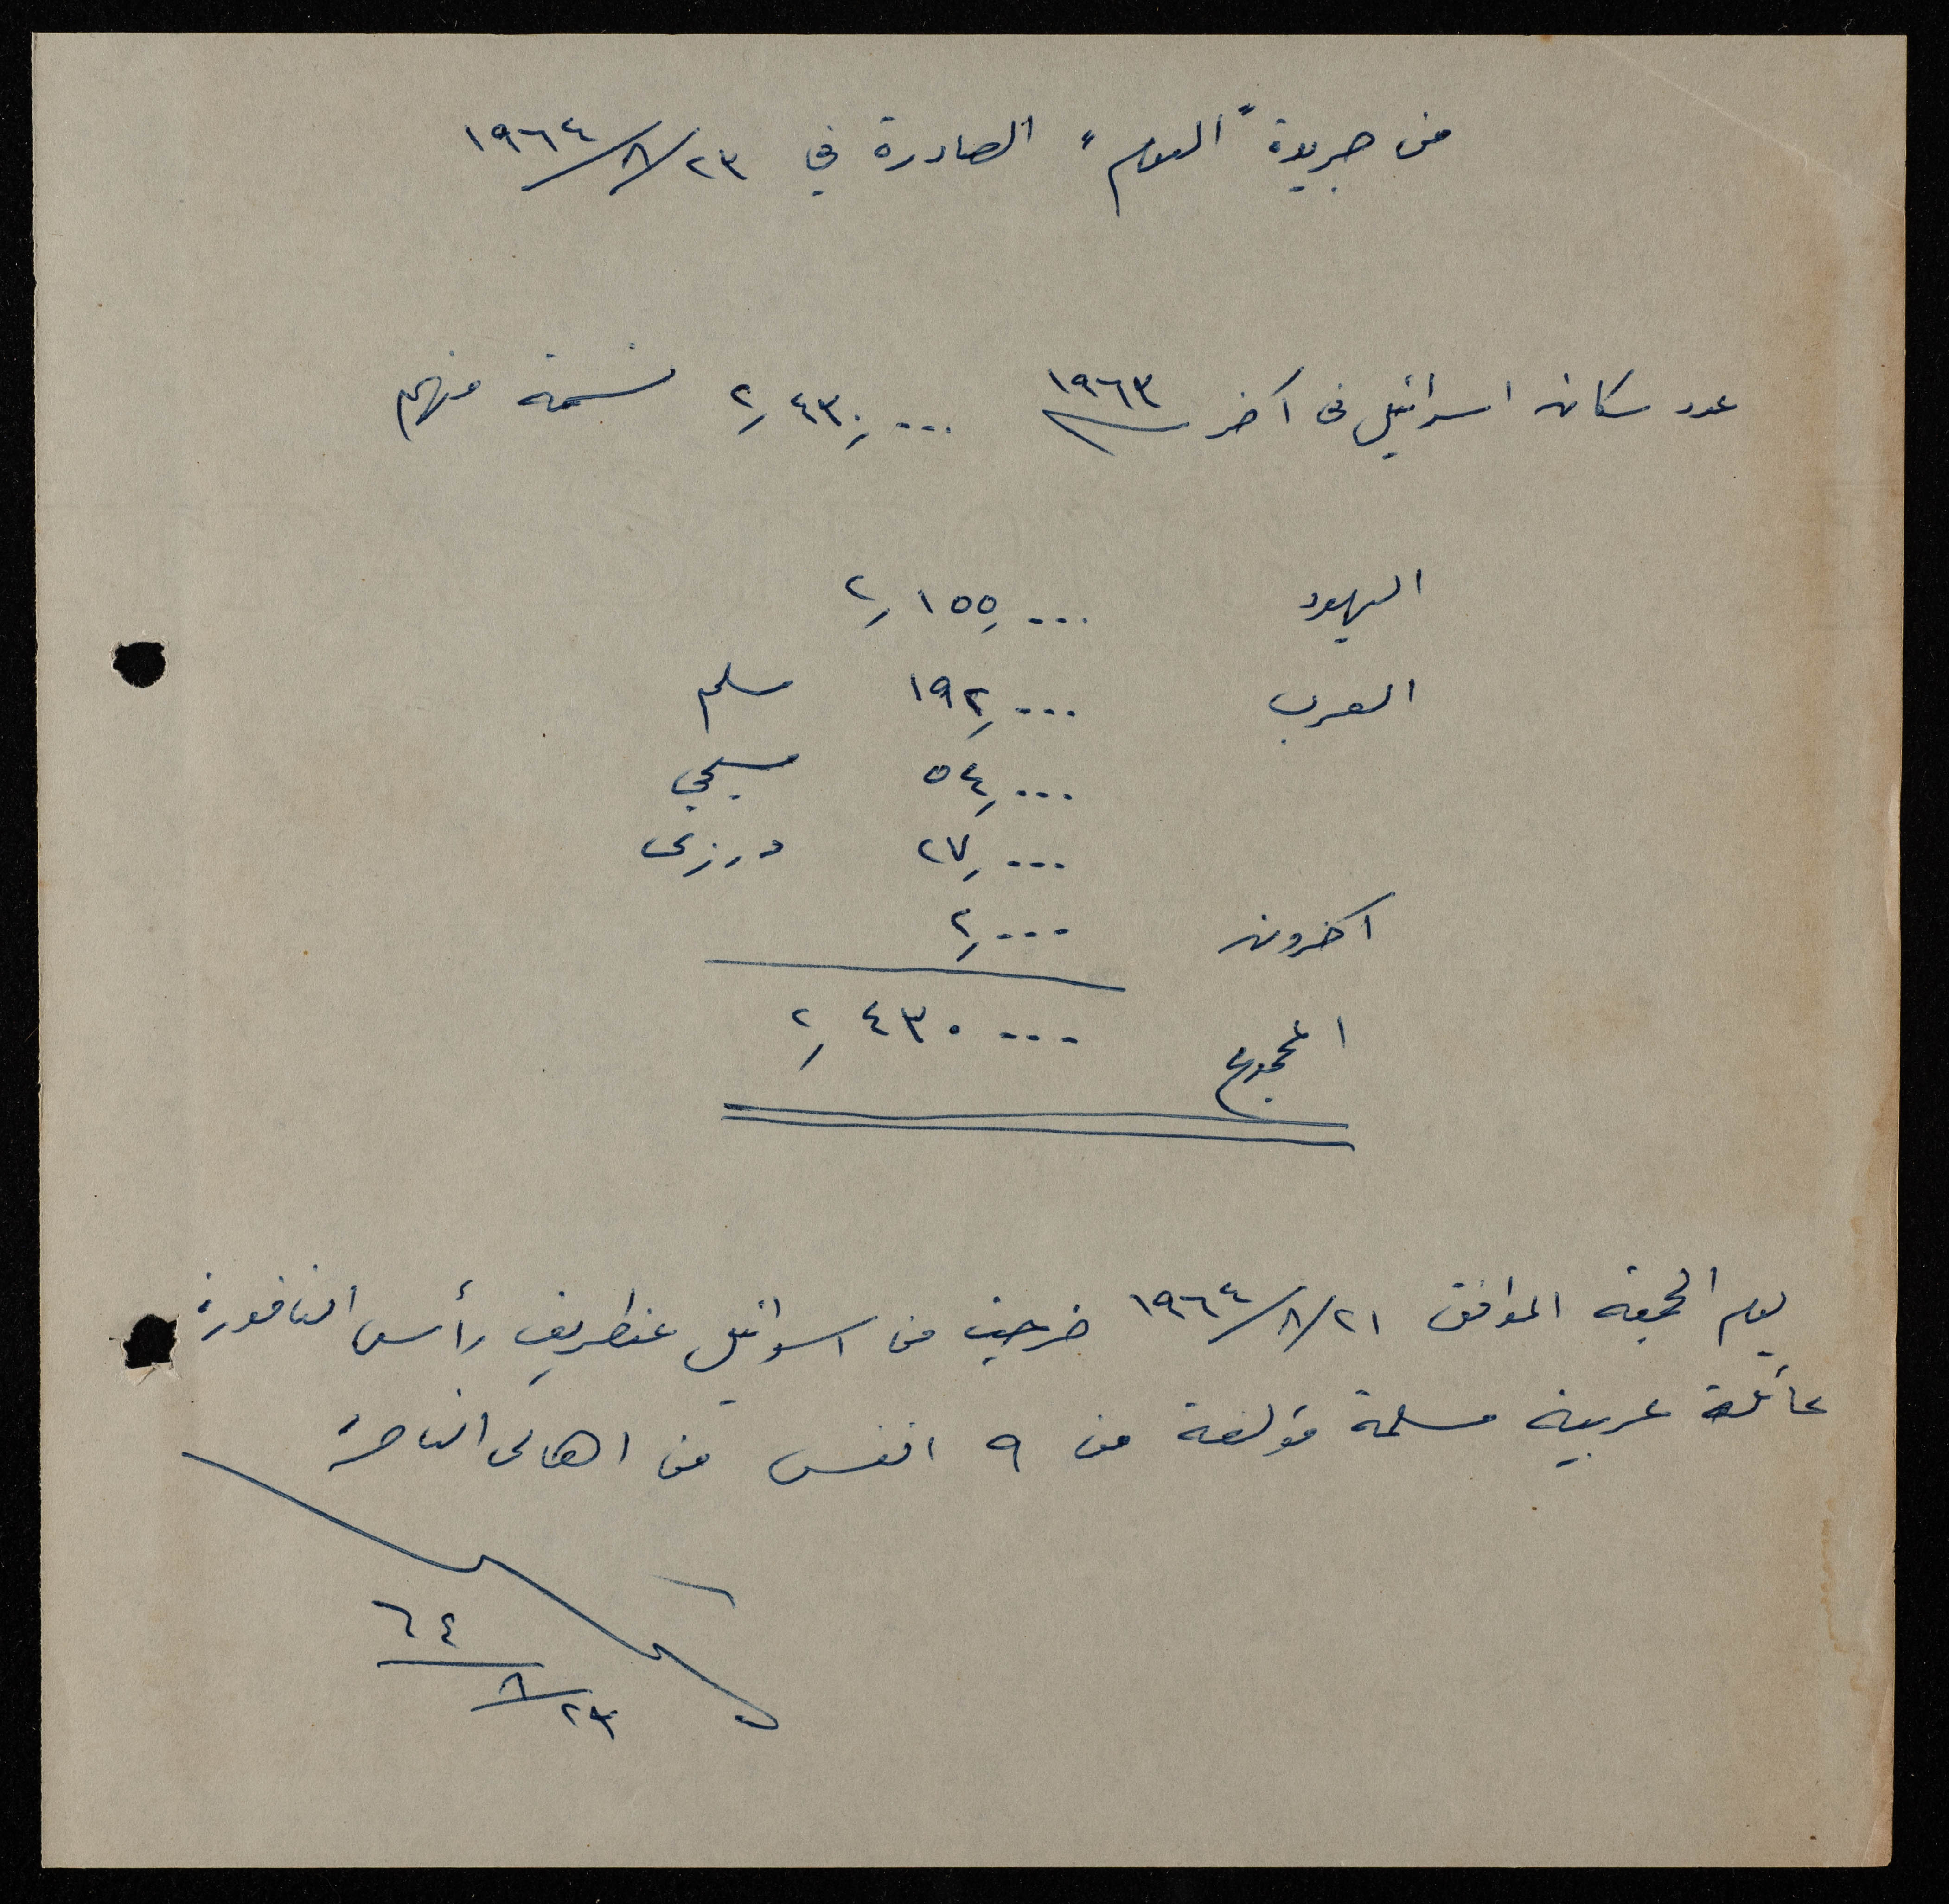 من جريدة "اليوم" الصادرة في ٢٣/٨/١٩٦٤
عدد سكان اسرائيل في آخر سنة ١٩٦٣ ٢,٤٣٠,٠٠٠ نسمة منهم
اليهود ٢,١٥٥,٠٠٠
العرب ١٩٢,٠٠٠ مسلم
٥٤,٠٠٠ مسيحي
٢٧,٠٠٠ درزى
آخرون ٢,٠٠٠
المجموع ٢,٤٣٠٠٠٠
يوم الجمعة الموافق ٢١/٨/١٩٦٤ خرجت من اسرائيل عنطريق رأس الناقورة
عائلة عربية مسلمة مؤلفة من ٩ انفس من اهالى الناصرة
٢٣/٨/٦٤